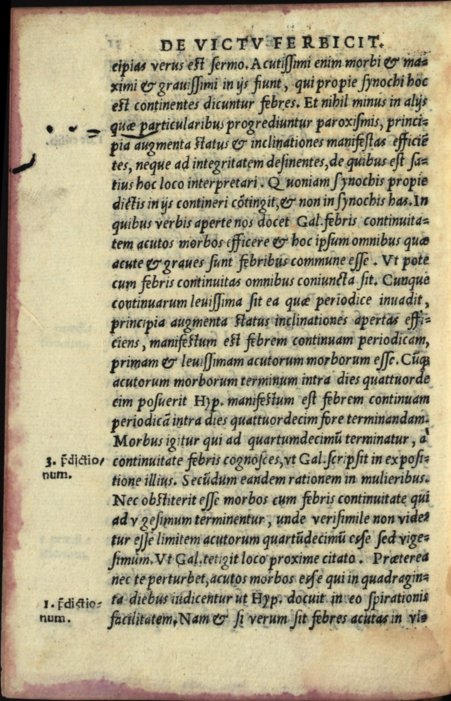 DE VICTV FERBICIT.
cipias verus est sermo. Acutissimi enim morbi & ma=
ximi & grauissimi in ijs fiunt, qui propie synochi hoc
est continentes dicuntur febres. Et nihil minus in alijs
quæ particularibus progrediuntur paroxismis, princi=
pia augmenta status & inclinationes manifestas efficiē
tes, neque ad integritatem desinentes, de quibus est sa=
tius hoc loco interpretari. Quoniam synochis propie
dictis in ijs contineri cōtingit, & non in synochis has. In
quibus verbis aperte nos docet Gal. febris continuita=
tem acutos morbos efficere & hoc ipsum omnibus quæ
acute & graues sunt febribus commune esse. Vt pote
cum febris continuitas omnibus coniuncta sit. Cunque
continuarum leuissima sit ea quæ periodice inuadit,
principia augmenta status inclinationes apertas effi=
ciens, manifestum est febrem continuam periodicam,
primam & leuissimam acutorum morborum esse. Cūq;
acutorum morborum terminum intra dies quattuorde
cim posuerit Hyp. manifestum est febrem continuam
periodicā intra dies quattuordecim fore terminandam.
Morbus igitur qui ad quartumdecimū terminatur, a
3. p̄dictio= continuitate febris cognosces, vt Gal. scripsit in exposi=
num. tione illius. Secūdum eandem rationem in mulieribus.
Nec obstiterit esse morbos cum febris continuitate qui
ad vgesimum terminentur, unde verisimile non vide=
tur esse limitem acutorum quartūdecimū esse sed vige=
simum. Vt Gal. tetigit loco proxime citato. Præterea
nec te perturbet, acutos morbos esse qui in quadragin=
1. p̄dictio= ta diebus iudicentur ut Hyp. docuit in eo spirationis
num. facilitatem. Nam & si verum sit febres acutas in vi=